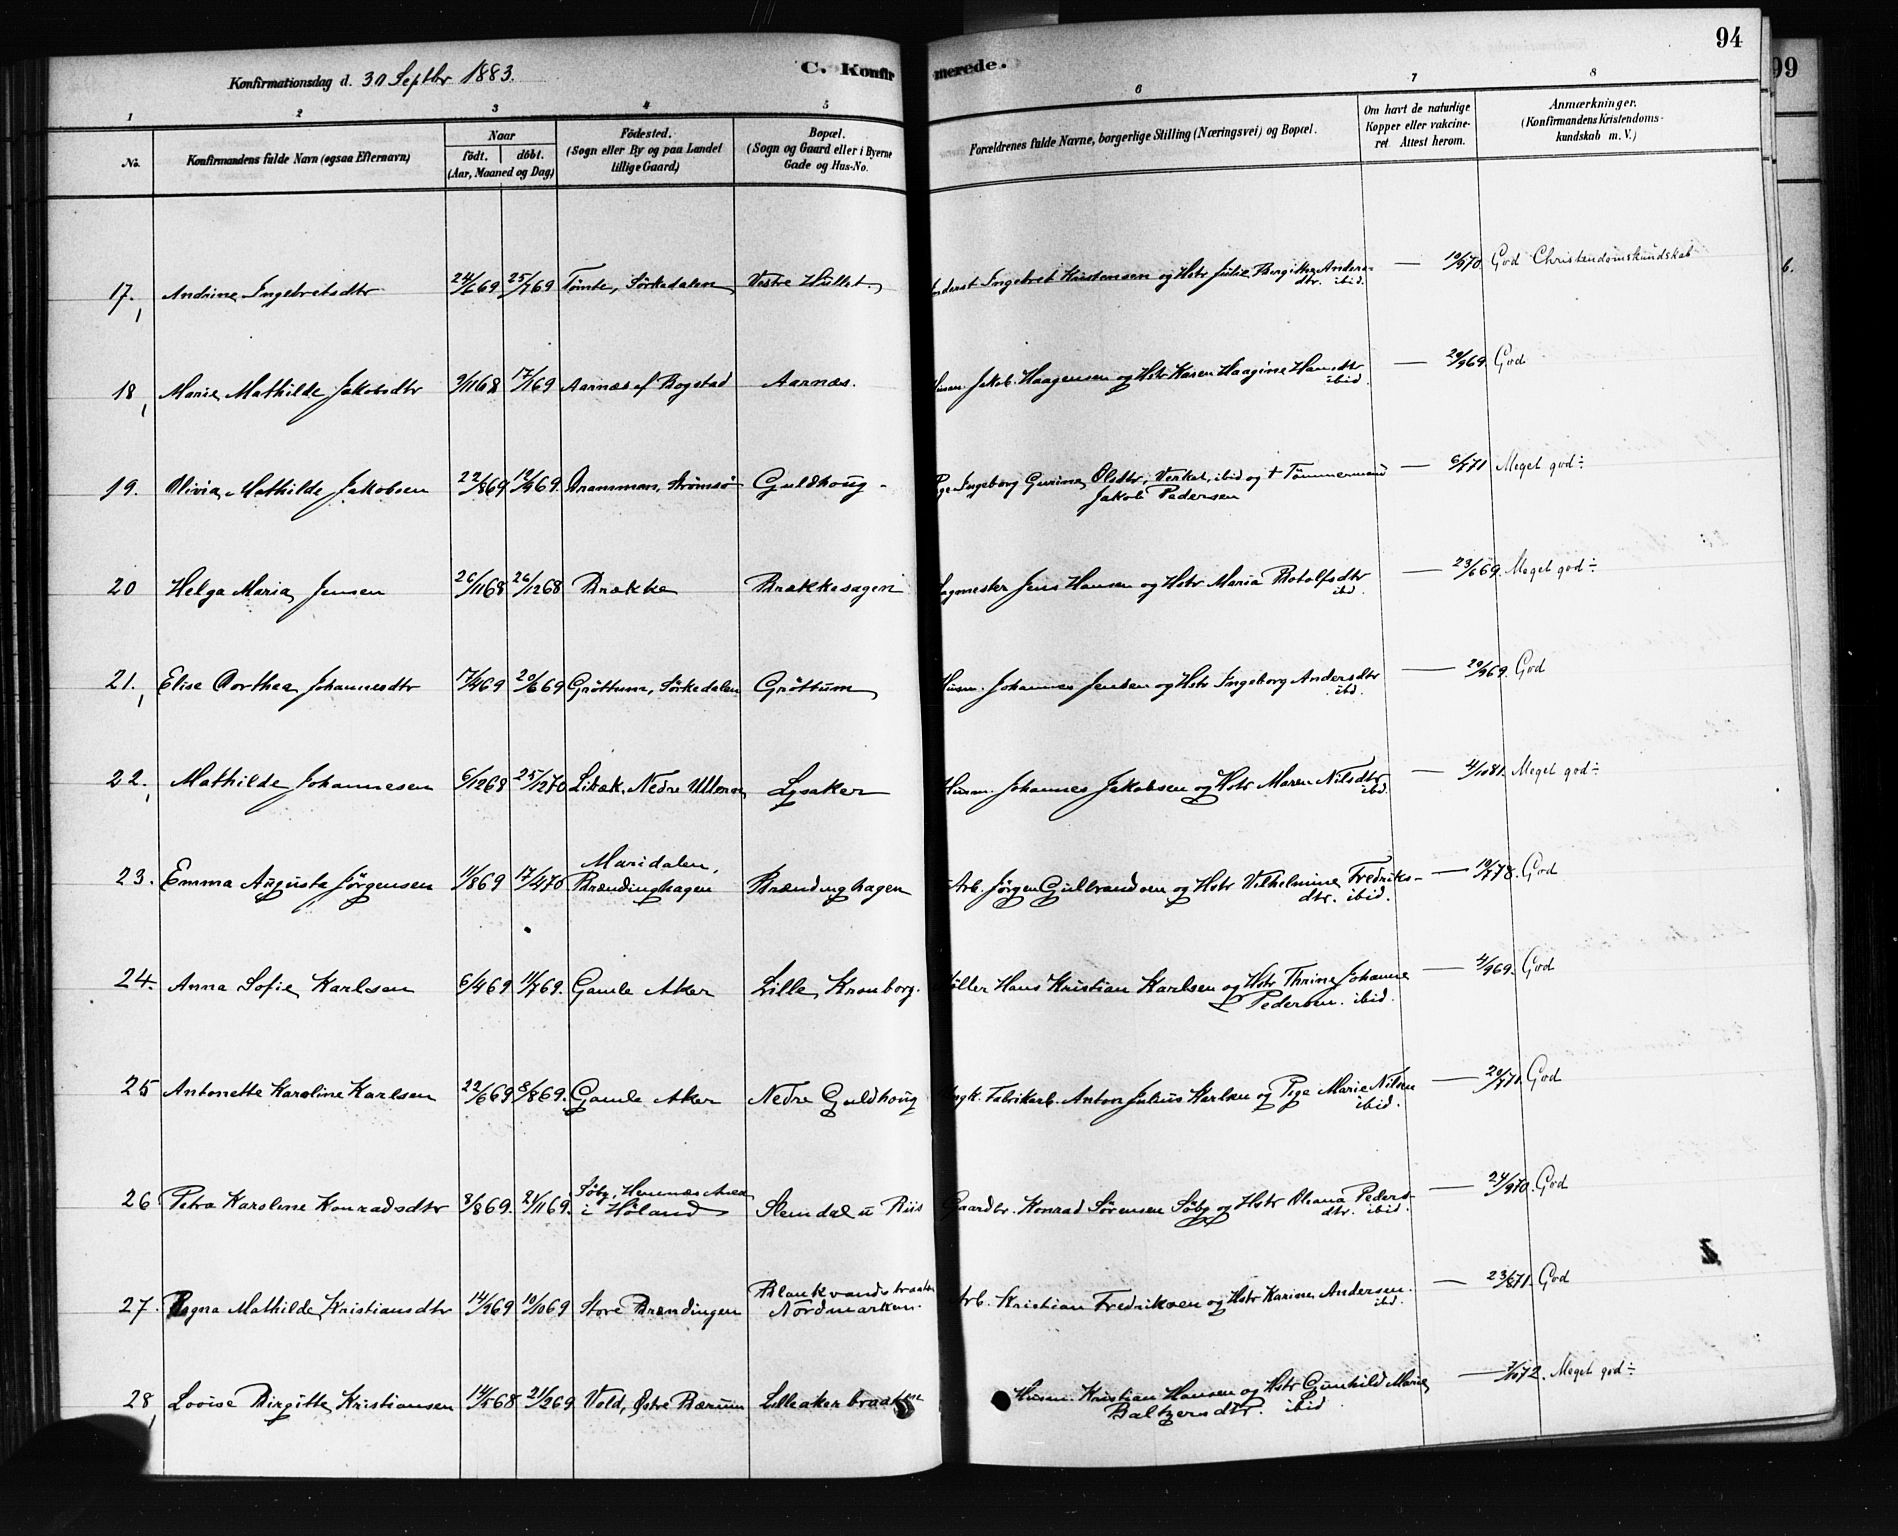 94
99
Konfirmationsdag d. 30 Septbr 1883.
C. Konfirmerede.
1 2 3 4 5 6 7 8
No.
Konfirmandens fulde Navn (ogsaa Efternavn)
Naar
födt. döbt.
(Aar, Maaned og Dag)
Födested.
(Sogn eller By og paa Landet
tillige Gaard)
Bopæl.
(Sogn og Gaard eller i Byerne
Gade og Hus-No.
Forældrenes fulde Navne, borgerlige Stilling (Næringsvei) og Bopæl.
Om havt de naturlige
Kopper eller vakcine-
ret Attest herom.
Anmærkninger.
(Konfirmandens Kristendoms-
kundskab m. V.)
17. Andrine Ingebretsdtr 24/6 69 25/7 69 Tömte, Sörkedalen Vestre Hullet. Ingebret Kristensen og Hstr Julie Bergitte Anders-
dtr. ibid. — 10/9 70. God Christendomskundskab
18 Marie Mathilde Jakobsdtr 9/11 68 17/1 69 Aarnæs u/ Bogstad Aarnæs. Husm. Jakob Haagensen og Hstr Karen Haagine Hansdtr
ibid. — 20/9 69. God
19. Olivia Mathilde Jakobsen 22/8 69 12/9 69. Drammen, Strömsö Guldhoug - Pige Ingeborg Gurine Olsdtr, Verket, ibid og † Tömmermand
Jakob Pedersen — 6/7 71 Meget god ÷
20 Helga Maria Jensen 26/11 68 26/12 68 Brække Brækkesagen Sagmester Jens Hansen og Hstr Maria Botolfsdtr
ibd. — 23/6 69. Meget god ÷
21. Elise Dorthea Johannesdtr 17/4 69 20/6 69 Gröttum, Sörkedalen Gröttum Husm. Johannes Jensen og Hstr Ingeborg Andersdtr
ibd. — 20/9 69. God
22. Mathilde Johannesen 6/12 68 25/12 70 Nedre Ullern Lysaker Husm. Johannes Jakobsen og Hstr Maren Nilsdtr
ibd. — 4/10 81. Meget god ÷
23. Emma Augusta Jörgensen 11/8 69 17/4 70 Maridalen,
Brændinghagen Brændinghagen Arb. Jörgen Gulbrandsen og Hstr Vilhelmine Fredriks-
dtr. ibid. — 10/7 78. God
24. Anna Sofie Karlsen 6/4 69 11/7 69. Gamle Aker Lille Kronborg. Möller Hans Kristian Karlsen og Hstr Thrine Johanne
Pedersen. ibid. — 4/9 69. God
25 Antonette Karoline Karlsen 22/6 69 8/8 69. Gamle Aker Nedre Guldhoug Ungk. Fabrikarb. Anton Julius Karlsen og Pige Marie Nilsen
ibid. — 20/7 71. God
26 Petra Karoline Konradsdtr 8/8 69. 21/11 69. Söby, Hemnæs
i Höland Slemdal u Riis Gaardbr. Konrad Sörensen Söby og Hstr Oliana Peders-
dtr. ibid. — 24/9 70. God
27. Ragna Mathilde Kristiansdtr 14/9 69 10/10 69 Store Brændingen Blankvandsbraaten
Nordmarken. Arb. Kristian Fredriksen og Hstr Karine Andersen.
ibd. — 23/8 71. God
28 Lovise Birgitte Kristiansen 14/5 68 21/2 69 Vold, Østre Bærum Lilleakerbraaten Husm. Kristian Hansen og Hstr Gunhild Marie
Baltzersdtr. ibid — Meget god ÷